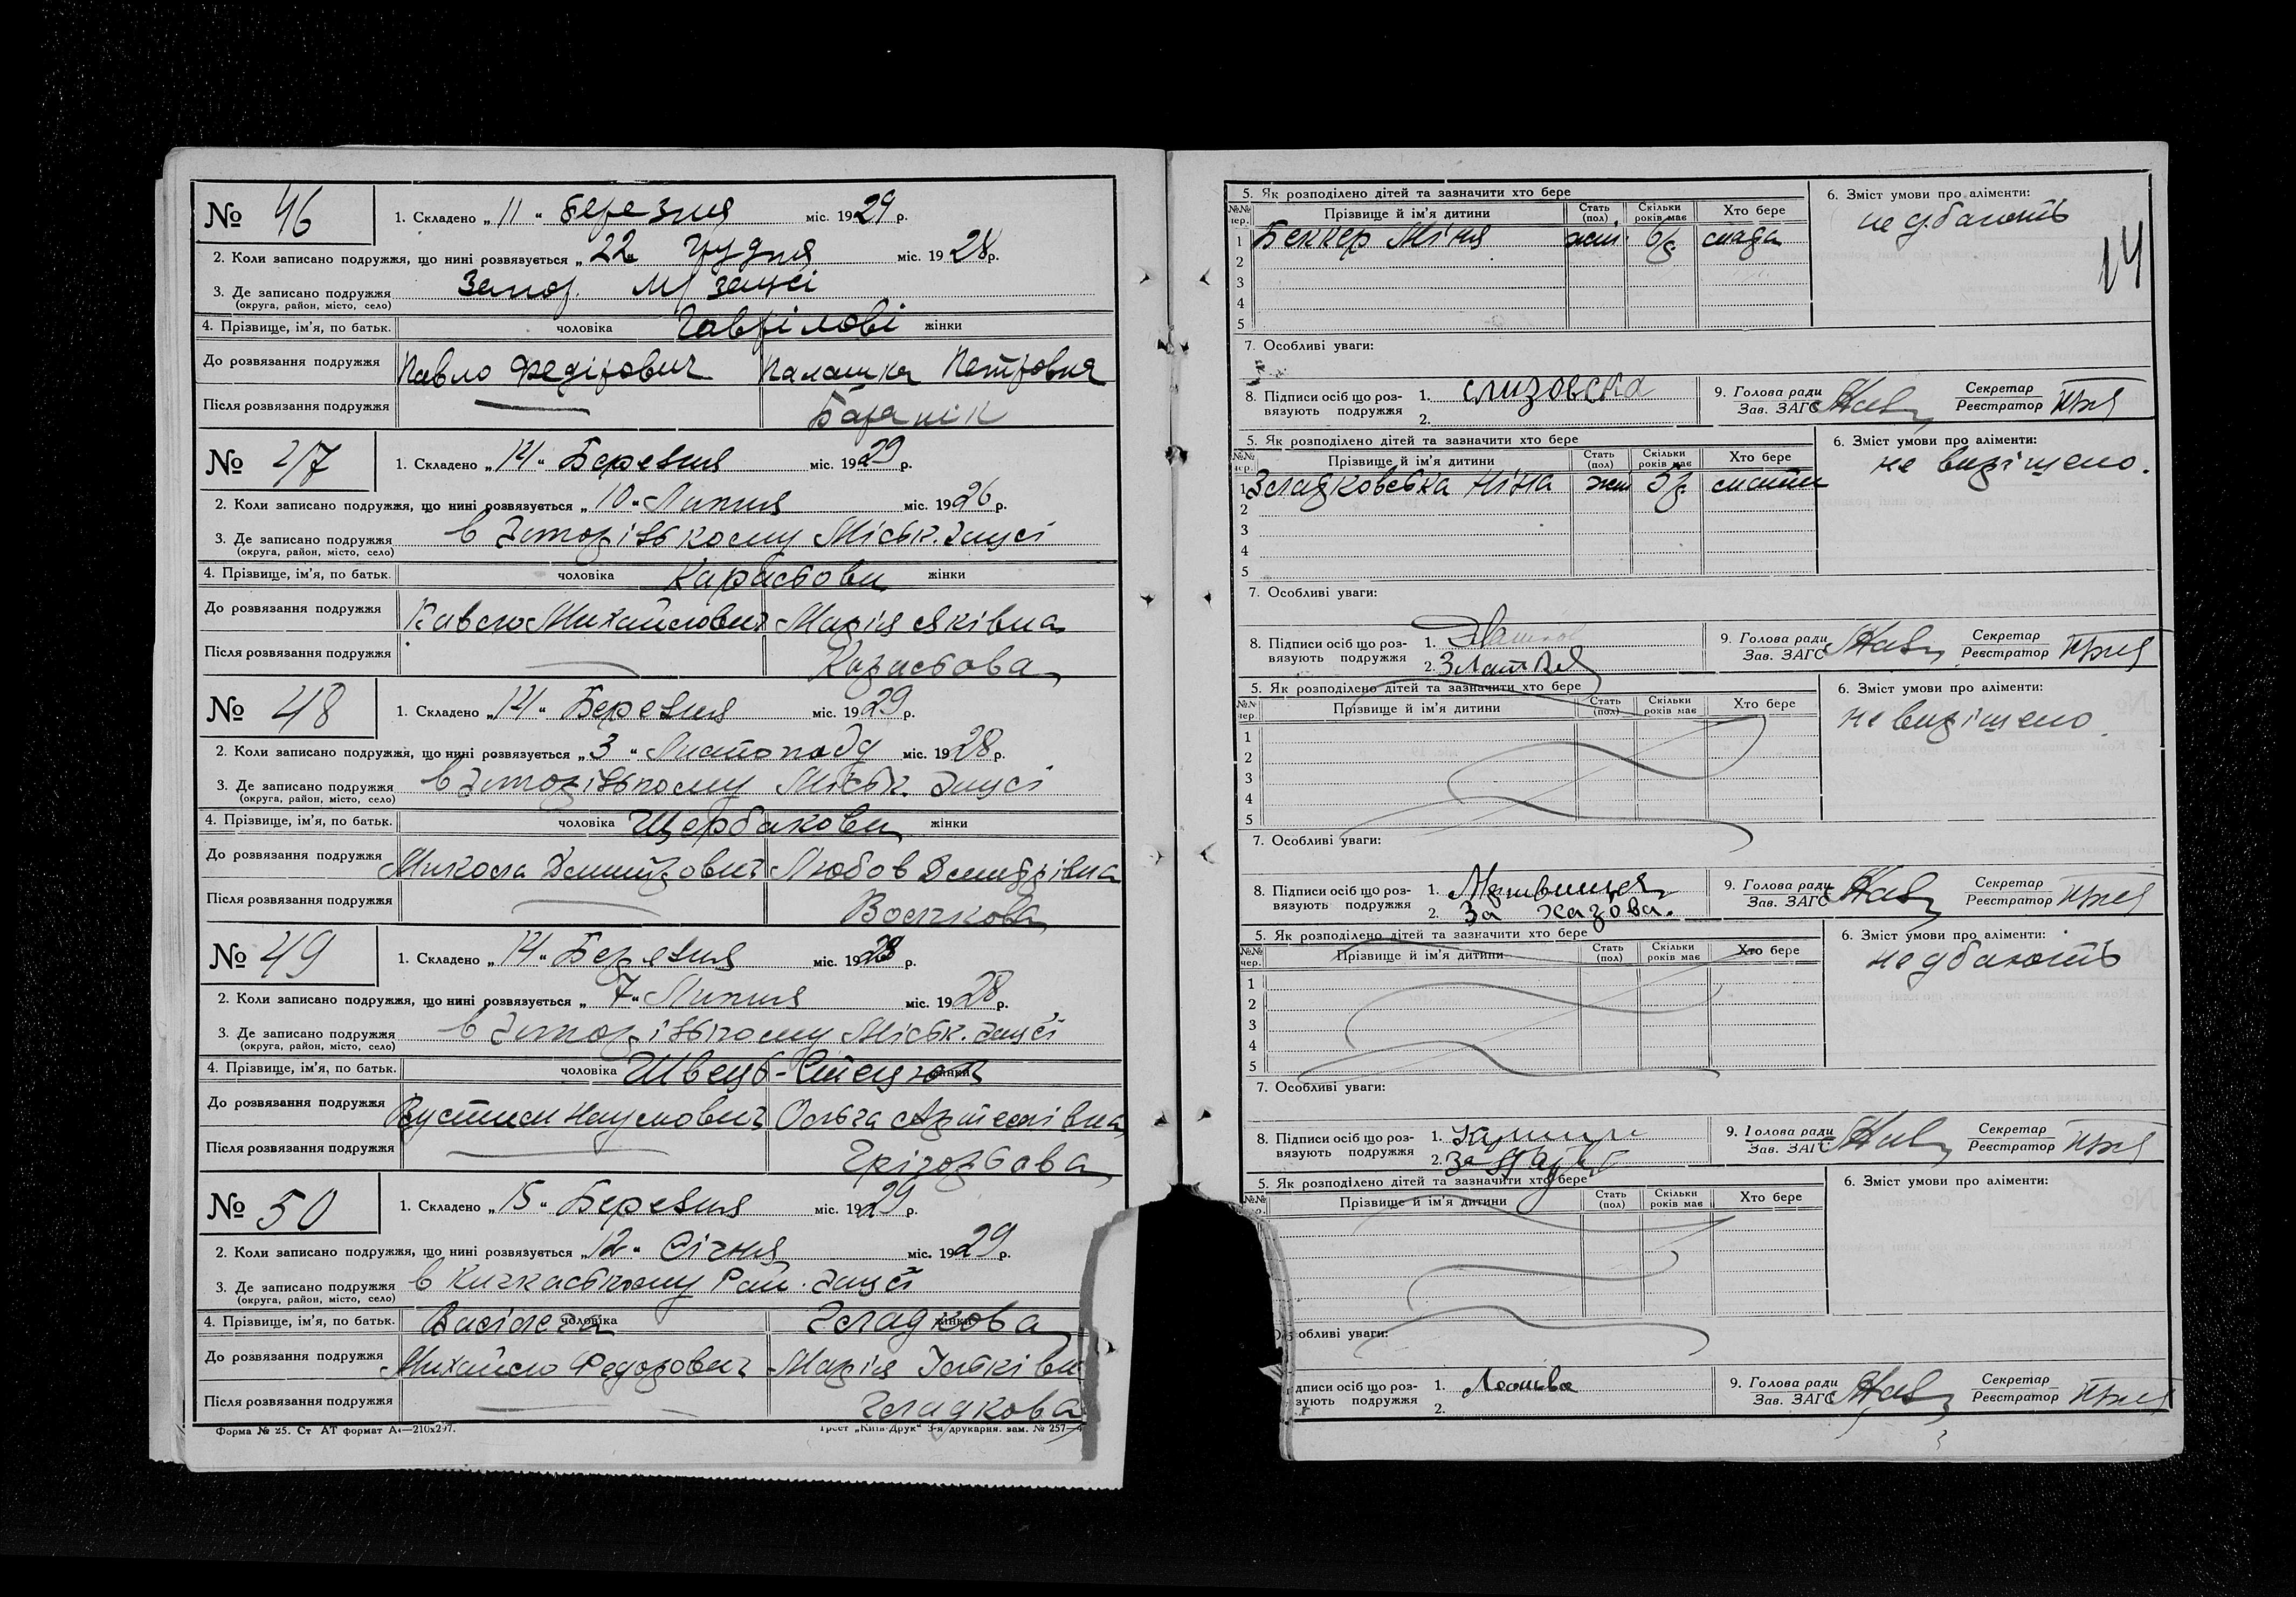 № 46
1. Складено „ 11 “ Березня міс. 1929 р.
2. Коли записано подружжя, що нині розвязується „ 22 Грудня міс. 1928 р.
3. Де записано подружжя Запор. М/загсі
(округа, район, місто, село)
4. Прізвище, ім'я, по батьк. чоловіка Гаврілові жінки
До розвязання подружжя Павло Федірович Палашка Петровня
Після розвязання подружжя — Баранік
№ 47
1. Складено „ 14 “ Березня міс. 1929 р.
2. Коли записано подружжя, що нині розвязується „ 10 “ Липня міс. 1926 р.
3. Де записано подружжя в Запорізькому Міськ. Загсі
(округа, район, місто, село)
4. Прізвище, ім'я, по батьк. чоловіка Карасьови жінки
До розвязання подружжя Павло Михайлович Марія Яківна
Після розвязання подружжя — Карасьова
№ 48
1. Складено „ 14 “ Березня міс. 1929 р.
2. Коли записано подружжя, що нині розвязується „ 3 “ Листопаду міс. 1928 р.
3. Де записано подружжя в Запорізькому Міськ. Загсі
(округа, район, місто, село)
4. Прізвище, ім'я, по батьк. чоловіка Щербакови жінки
До розвязання подружжя Микола Дмитрович Любов Дмитрівна
Після розвязання подружжя — Волчкова
№ 49
1. Складено „ 14 “ Березня міс. 1929 р.
2. Коли записано подружжя, що нині розвязується „ 7 “ Липня міс. 1928 р.
3. Де записано подружжя в Запорізькому Міськ. Загсі
(округа, район, місто, село)
4. Прізвище, ім'я, по батьк. чоловіка Швець- жінки
До розвязання подружжя Наумович Ольга Артемівна
Після розвязання подружжя — Грігорьова
№ 50
1. Складено „ 15 “ Березня міс. 1929 р.
2. Коли записано подружжя, що нині розвязується „ 12 “ Січня міс. 1929 р.
3. Де записано подружжя в Кичкаському Рай. Загсі
(округа, район, місто, село)
4. Прізвище, ім'я, по батьк. чоловіка жінки Гладкова
До розвязання подружжя Михайло Федорович Марія
Після розвязання подружжя — Гладкова
Форма № 25. Ст АТ формат А4—210х297. Трест „Київ-Друк“ 3-я друкарня. зам. № 257—
5. Як розподілено дітей та зазначити хто бере
6. Зміст умови про аліменти:
№№ чер. Прізвище й ім'я дитини Стать (пол) Скільки років має Хто бере
не дбають
14
1 Беккер Міня жін. 6 р.
2
3
4
5
7. Особливі уваги:
8. Підписи осіб що розвязують подружжя 1. слизовска
2.
9. Голова ради Зав. ЗАГС Секретар Реєстратор
5. Як розподілено дітей та зазначити хто бере
6. Зміст умови про аліменти:
№№ чер. Прізвище й ім'я дитини Стать (пол) Скільки років має Хто бере
не вирішено.
1 Зелядковська Ніна жін 5 р. мати
2
3
4
5
7. Особливі уваги:
8. Підписи осіб що розвязують подружжя 1.
2.
9. Голова ради Зав. ЗАГС Секретар Реєстратор
5. Як розподілено дітей та зазначити хто бере
6. Зміст умови про аліменти:
№№ чер. Прізвище й ім'я дитини Стать (пол) Скільки років має Хто бере
не вирішено
1
2
3
4
5
7. Особливі уваги:
8. Підписи осіб що розвязують подружжя 1.
2. За
9. Голова ради Зав. ЗАГС Секретар Реєстратор
5. Як розподілено дітей та зазначити хто бере
6. Зміст умови про аліменти:
№№ чер. Прізвище й ім'я дитини Стать (пол) Скільки років має Хто бере
не дбають
1
2
3
4
5
7. Особливі уваги:
8. Підписи осіб що розвязують подружжя 1.
2. За
9. Голова ради Зав. ЗАГС Секретар Реєстратор
5. Як розподілено дітей та зазначити хто бере
6. Зміст умови про аліменти:
№№ Прізвище й ім'я дитини Стать (пол) Скільки років має Хто бере
обливі уваги:
дписи осіб що роззують подружжя 1.
2.
9. Голова ради Зав. ЗАГС Секретар Реєстратор